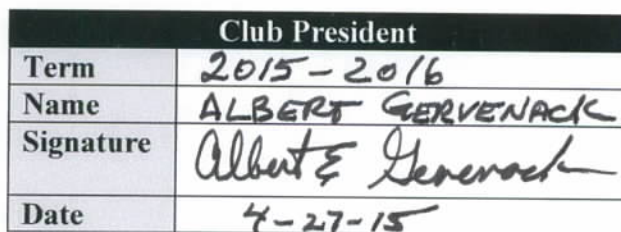 Club President
Term 2015-2016
Name ALBERT GERVENACK
Signature Albert E Gervenack
Date 4-27-15